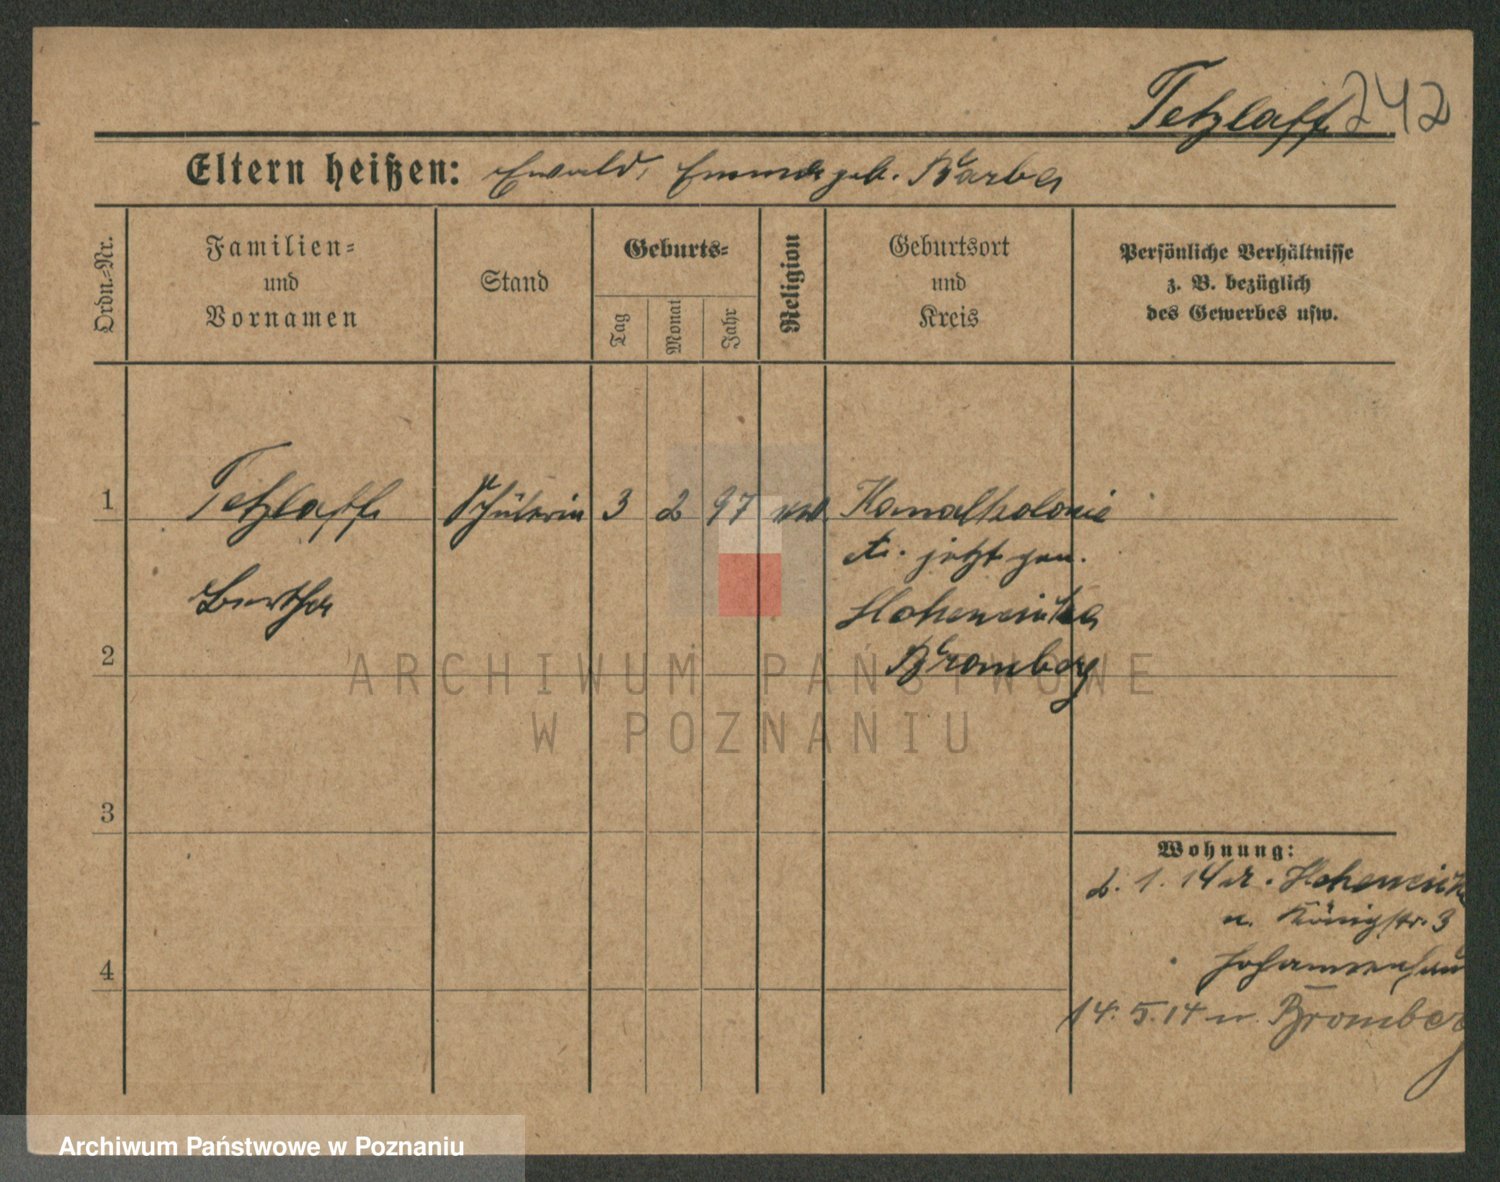 Tetzlaff 242
Eltern heißen: Ewald, Emma geb. Barba
Ordn.-Nr.
Familien-
und
Vornamen
Stand
Geburts-
Tag
Monat
Jahr
Religion
Geburtsort
und
Kreis
Persönliche Verhältnisse
z. B. bezüglich
des Gewerbes usw.
1 Tetzlaff Schülerin 3 2 97 Kanalkolonie
A. jetzt gen.
Bertha Hoheneiche
2 Bromberg
ARCHIWUM PAŃSTWOWE
W POZNANIU
3
Wohnung:
2. 1. 14 Hoheneich
n. Königstr. 3
4
14. 5. 14 n. Bromberg
Archiwum Państwowe w Poznaniu